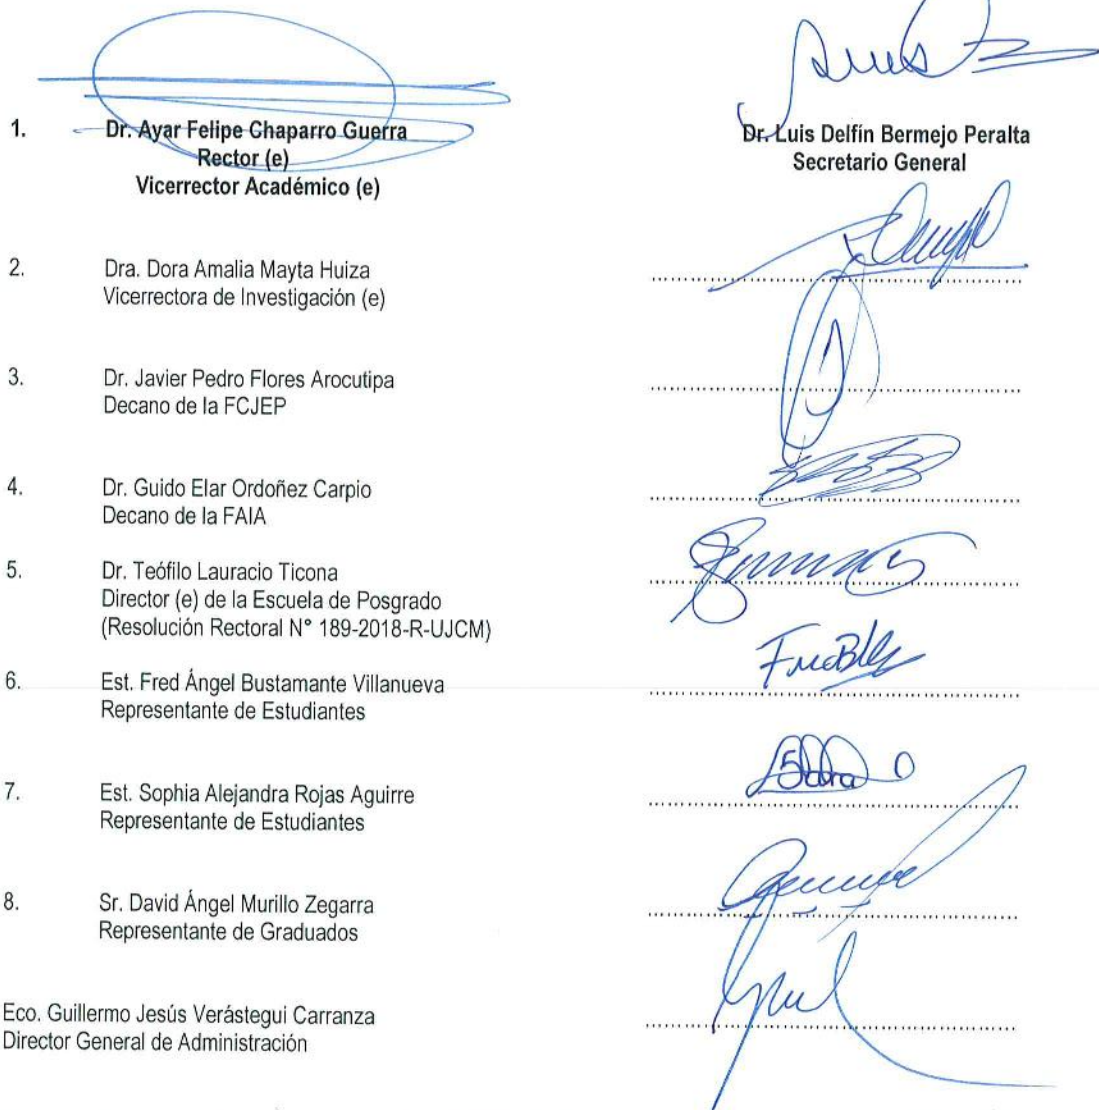 1. Dr. Ayar Felipe Chaparro Guerra
Rector (e)
Vicerrector Académico (e)
Dr. Luis Delfín Bermejo Peralta
Secretario General
2. Dra. Dora Amalia Mayta Huiza
Vicerrectora de Investigación (e)
3. Dr. Javier Pedro Flores Arocutipa
Decano de la FCJEP
4. Dr. Guido Elar Ordoñez Carpio
Decano de la FAIA
5. Dr. Teófilo Lauracio Ticona
Director (e) de la Escuela de Posgrado
(Resolución Rectoral N° 189-2018-R-UJCM)
6. Est. Fred Ángel Bustamante Villanueva
Representante de Estudiantes
7. Est. Sophia Alejandra Rojas Aguirre
Representante de Estudiantes
8. Sr. David Ángel Murillo Zegarra
Representante de Graduados
Eco. Guillermo Jesús Verástegui Carranza
Director General de Administración